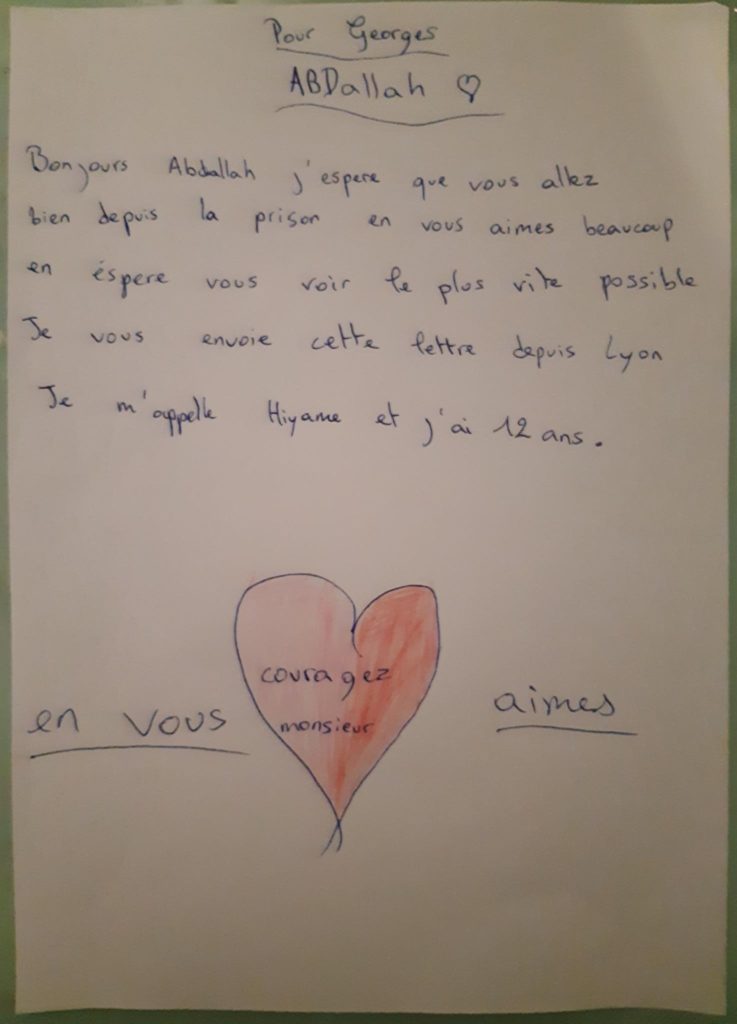 Pour Georges
ABDallah ♡
Bonjours Abdallah j'espere que vous allez
bien depuis la prison en vous aimes beaucoup
en éspere vous voir le plus vite possible
Je vous envoie cette lettre depuis Lyon
Je m'appelle Hiyame et j'ai 12 ans.
couragez
monsieur
en vous aimes